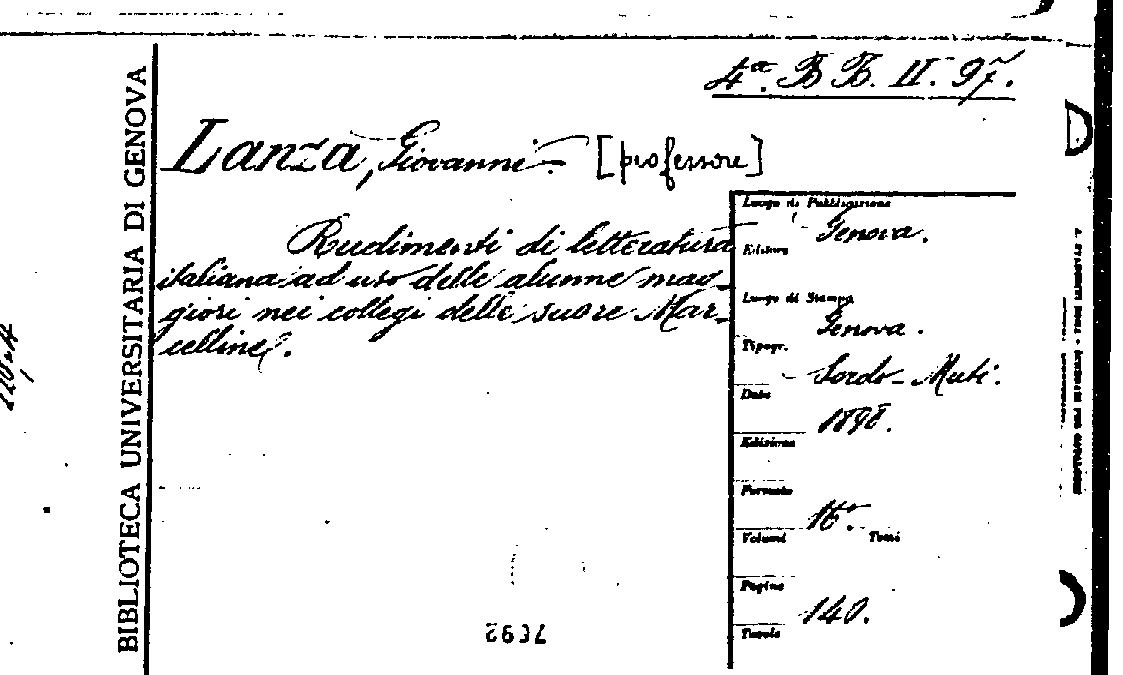 4ª. B B. II. 97.
BIBLIOTECA UNIVERSITARIA DI GENOVA
Lanza, Giovanni - [professore]
Rudimenti di letteratura
italiana ad uso delle alunne mag-
giori nei collegi delle suore Mar-
celline.
Luogo di Pubblicazione
Genova.
Editore
Luogo di Stampa
Genova.
Tipogr.
Sordo-Muti.
Data
1898.
Edizione
Formato
16°.
Volumi Tomi
Pagine
140.
Tavole